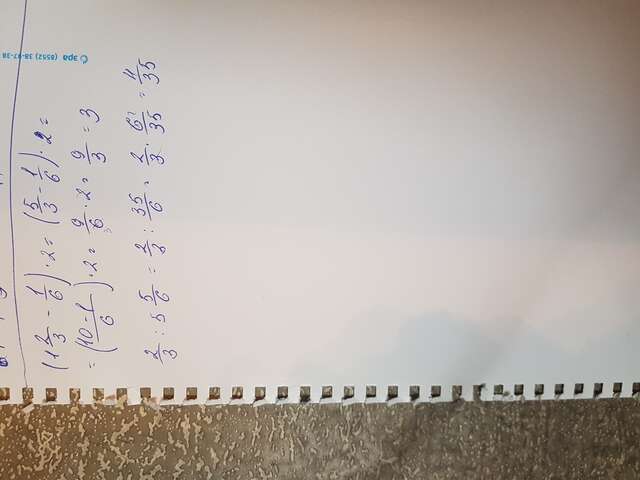 (1 2/3 - 1/6) · 2 = (5/3 - 1/6) · 2 =
= (10-1/6) · 2 = 9/6 · 2 = 9/3 = 3
2/3 : 5 5/6 = 2/3 : 35/6 = 2/3 · 6/35 = 4/35
эра (8552) 38-97-38